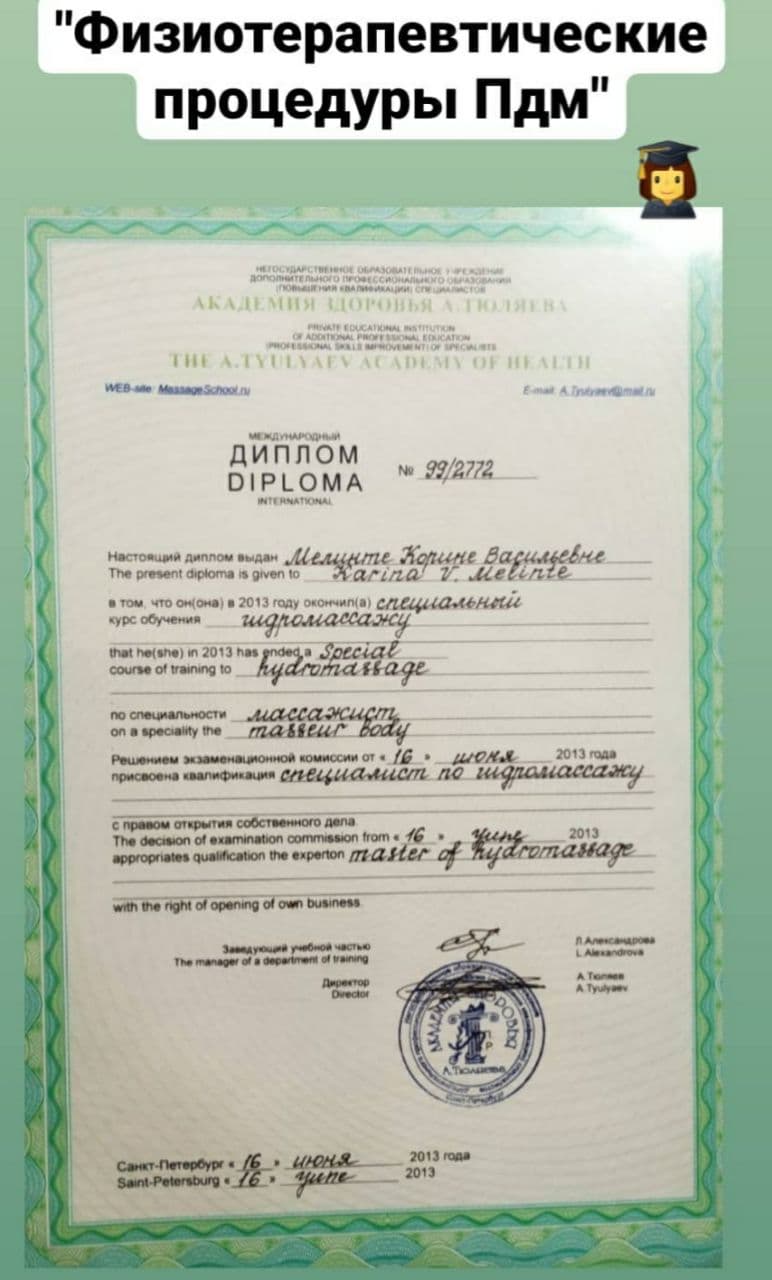 "Физиотерапевтические
процедуры Пдм"
НЕГОСУДАРСТВЕННОЕ ОБРАЗОВАТЕЛЬНОЕ УЧРЕЖДЕНИЕ
ДОПОЛНИТЕЛЬНОГО ПРОФЕССИОНАЛЬНОГО ОБРАЗОВАНИЯ
(ПОВЫШЕНИЯ КВАЛИФИКАЦИИ) СПЕЦИАЛИСТОВ
АКАДЕМИЯ ЗДОРОВЬЯ А.ТЮЛЯЕВА
PRIVATE EDUCATIONAL INSTITUTION
OF ADDITIONAL PROFESSIONAL EDUCATION
(PROFESSIONAL SKILLS IMPROVEMENT) OF SPECIALISTS
THE A.TYULYAEV ACADEMY OF HEALTH
WEB-site: MassageSchool.ru E-mail: A.Tyulyaev@mail.ru
МЕЖДУНАРОДНЫЙ
ДИПЛОМ
№ 99/2772
DIPLOMA
INTERNATIONAL
Настоящий диплом выдан Мелинте Корине Васильевне
The present diploma is given to Karina V. Melinte
в том, что он(она) в 2013 году окончил(а) специальный
курс обучения гидромассажу
that he(she) in 2013 has ended a Special
course of training to hydromassage
по специальности массажист
on a speciality the masseur body
Решением экзаменационной комиссии от « 16 » июня 2013 года
присвоена квалификация специалист по гидромассажу
с правом открытия собственного дела.
The decision of examination commission from « 16 » Yune 2013
appropriates qualification the experton master of hydromassage
with the right of opening of own business.
Заведующий учебной частью Л.Александрова
The manager of a department of training L.Alexandrova
Директор А.Тюляев
Director A.Tyulyaev
АКАДЕМИЯ ЗДОРОВЬЯ
А.Тюляева
Санкт-Петербург
Санкт-Петербург « 16 » июня 2013 года
Saint-Petersburg « 16 » Yune 2013